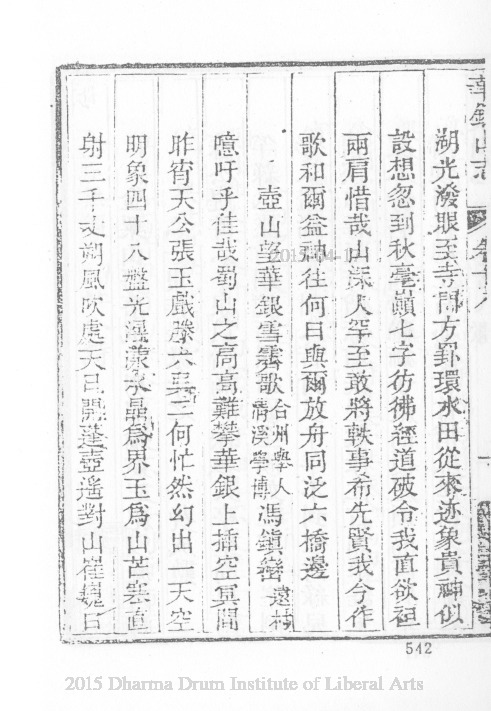 華銀山志
卷十八
湖光潑眼至寺門方罫環水田從來迹象貴神似
設想忽到秋毫巔七字彷彿經道破令我直欲袒
兩肩惜哉山深人罕至敢將軼事希先賢我今作
歌和爾益神往何日與爾放舟同泛六橋邊
壺山望華銀雪霽歌 合州舉人清溪學博 馮鎮巒 遠村
噫吁乎佳哉蜀山之高高難攀華銀上插空冥間
昨宵天公張玉戲滕六巽二何忙然幻出一天空
明象四十八盤光滉漾水晶為界玉為山芒寒直
射三千丈朔風吹處天日開蓬壺遙對山崔巍日
542
2015-04-1
2015 Dharma Drum Institute of Liberal Arts